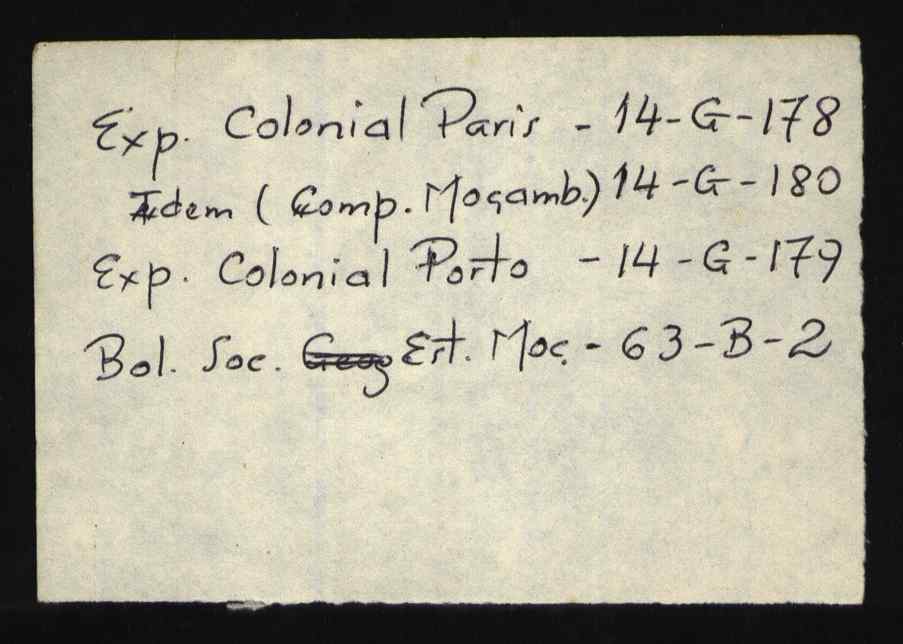 Exp. Colonial Paris - 14-G-178
Idem (Comp. Moçamb.) 14-G-180
Exp. Colonial Porto - 14-G-179
Bol. Soc. Geog Est. Moç. - 63-B-2